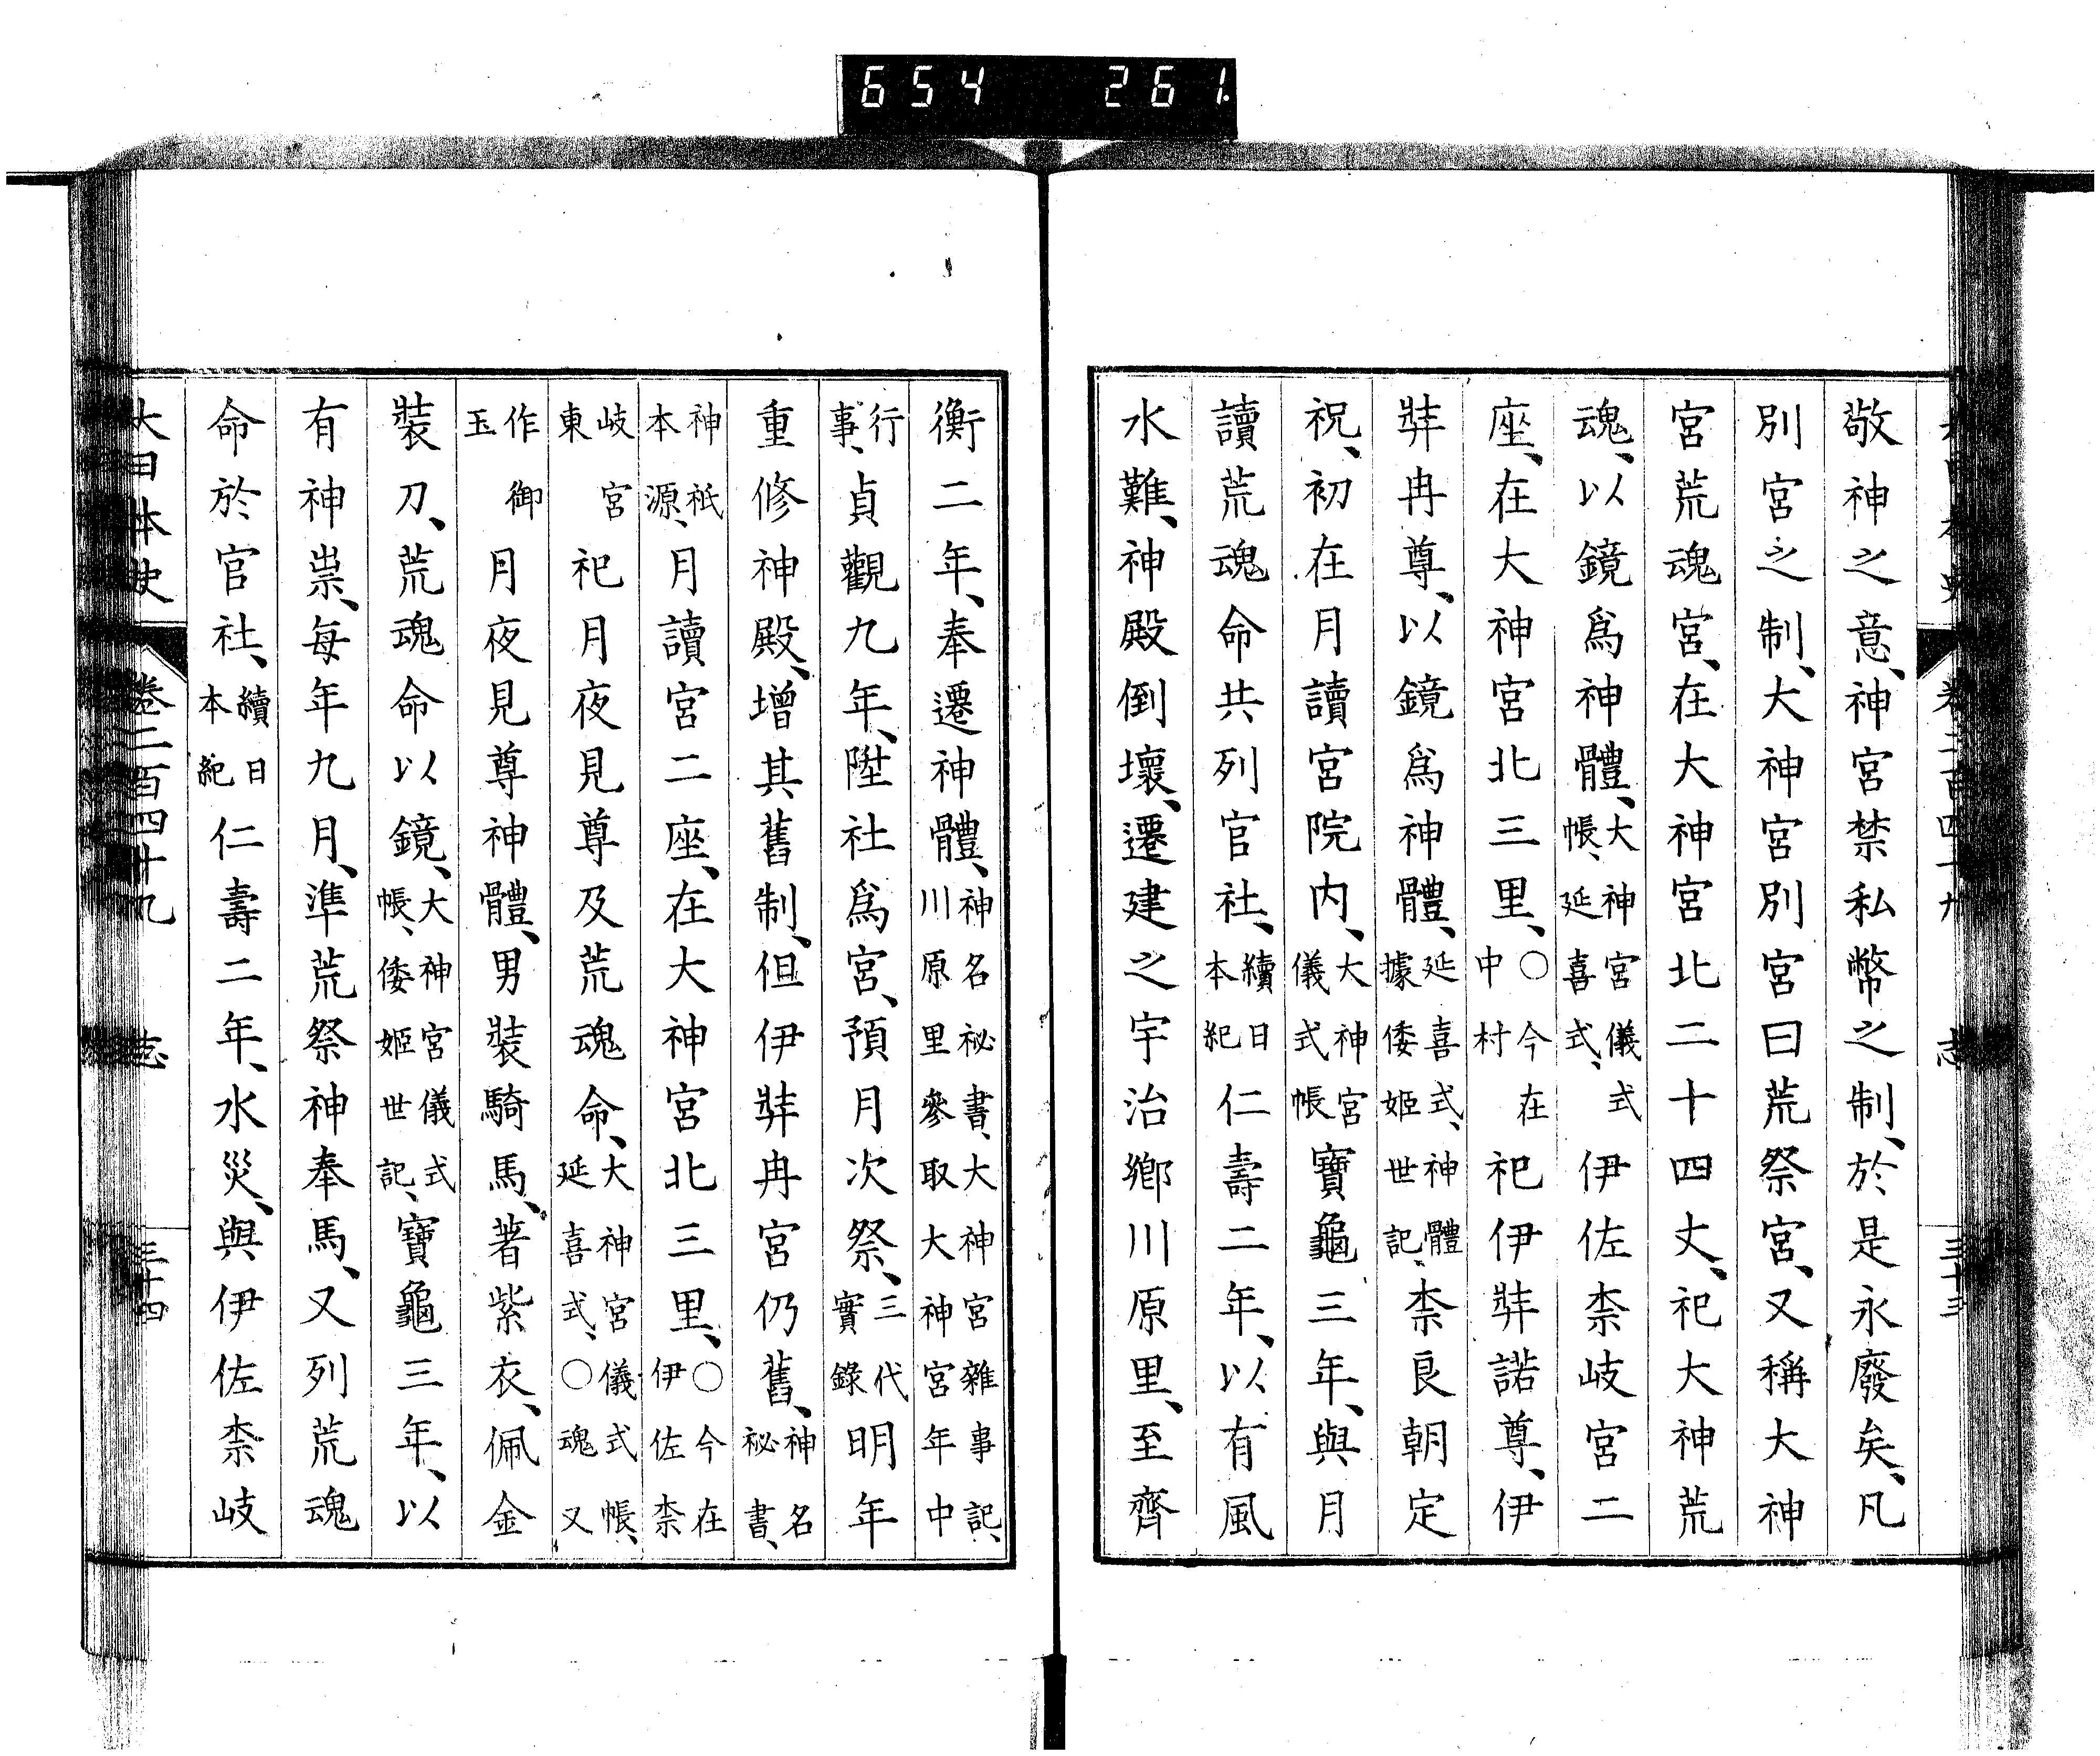 654 261
敬神之意、神宮禁私幣之制、於是永廢矣、凡
別宮之制、大神宮別宮曰荒祭宮、又稱大神
宮荒魂宮、在大神宮北二十四丈、祀大神荒
魂、以鏡爲神體、大神宮儀式帳、延喜式、伊佐柰岐宮二
座、在大神宮北三里、○今在中村祀伊弉諾尊、伊
弉冉尊、以鏡爲神體、延喜式、神體據倭姬世記、柰良朝定
祝、初在月讀宮院内、大神宮儀式帳寶龜三年、與月
讀荒魂命共列官社、續日本紀仁壽二年、以有風
水難、神殿倒壞、遷建之宇治鄉川原里、至齊
衡二年、奉遷神體、神名祕書、大神宮雜事記、川原里參取大神宮年中
行事、貞觀九年、陞社爲宮、預月次祭、三代實錄明年
重修神殿、增其舊制、但伊弉冉宮仍舊、神名祕書、
神祇本源、月讀宮二座、在大神宮北三里、○今在伊佐柰
岐宮東祀月夜見尊及荒魂命、大神宮儀式帳、延喜式、○魂又
作御玉月夜見尊神體、男裝騎馬、著紫衣、佩金
裝刀、荒魂命以鏡、大神宮儀式帳、倭姬世記、寶龜三年、以
有神祟、每年九月、準荒祭神奉馬、又列荒魂
命於官社、續日本紀仁壽二年、水災、與伊佐柰岐
大日本史 卷二百四十九 志 三十四